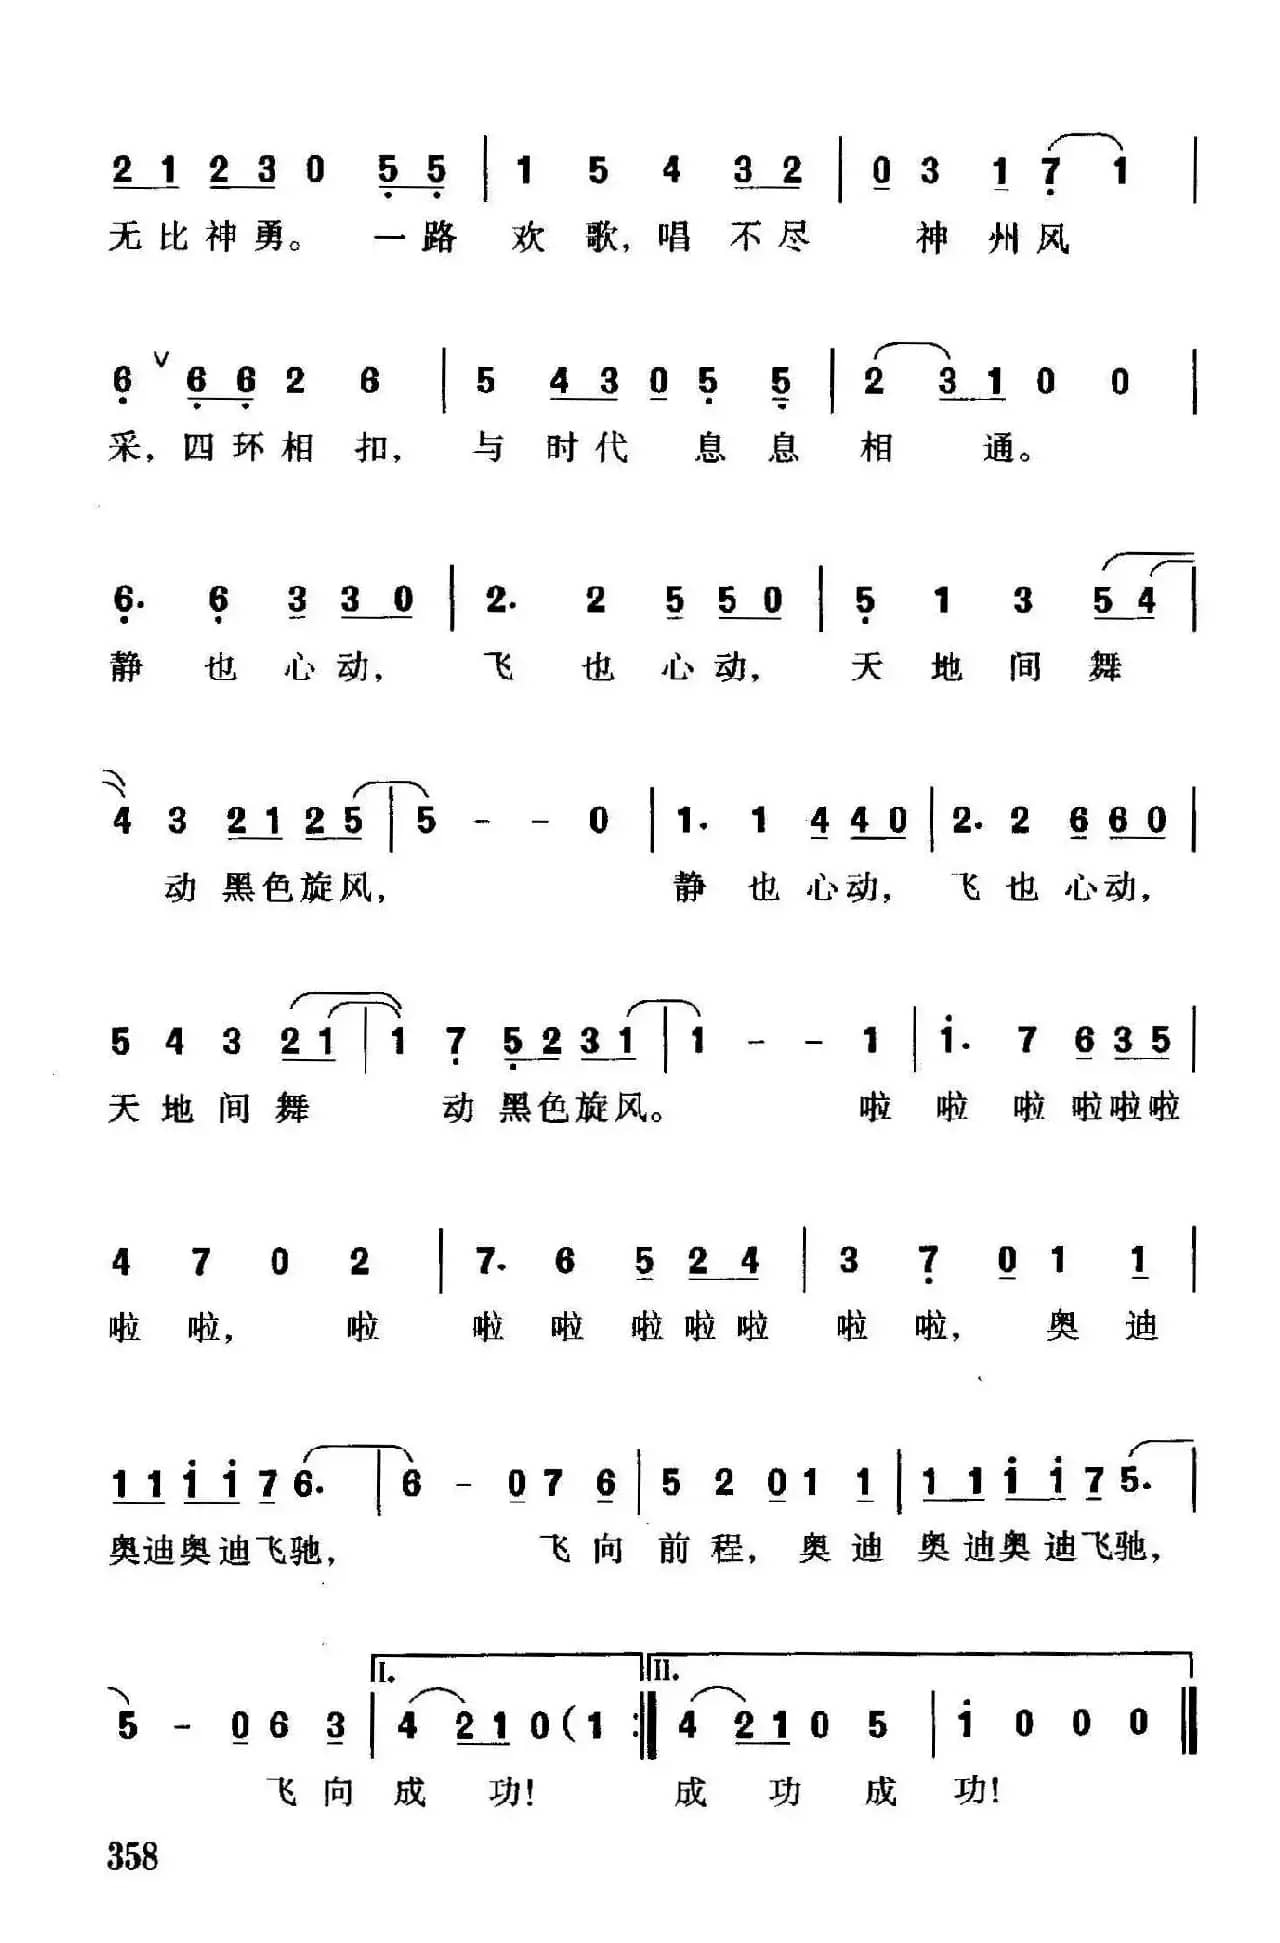 2 1 2 3 0 5 5 | 1 5 4 3 2 | 0 3 1 7 1 |
无比神勇。一路 欢歌,唱不尽 神州风
6 ∨ 6 6 2 6 | 5 4 3 0 5 5 | 2 3 1 0 0 |
采,四环相扣, 与时代息息 相通。
6. 6 3 3 0 | 2. 2 5 5 0 | 5 1 3 5 4 |
静也心动, 飞也心动, 天地间舞
4 3 2 1 2 5 | 5 - - 0 | 1. 1 4 4 0 | 2. 2 6 6 0 |
动黑色旋风, 静也心动, 飞也心动,
5 4 3 2 1 | 1 7 5 2 3 1 | 1 - - 1 | 1. 7 6 3 5 |
天地间舞 动黑色旋风。 啦 啦啦啦啦啦
4 7 0 2 | 7. 6 5 2 4 | 3 7 0 1 1 |
啦啦, 啦 啦啦啦啦啦 啦啦, 奥迪
1 1 1 1 7 6. | 6 - 0 7 6 | 5 2 0 1 1 | 1 1 1 1 7 5. |
奥迪奥迪飞驰, 飞向 前程,奥迪 奥迪奥迪飞驰,
I. II.
5 - 0 6 3 | 4 2 1 0 ( 1 :‖ 4 2 1 0 5 | 1 0 0 0 ‖
飞向 成功! 成功成 功!
358